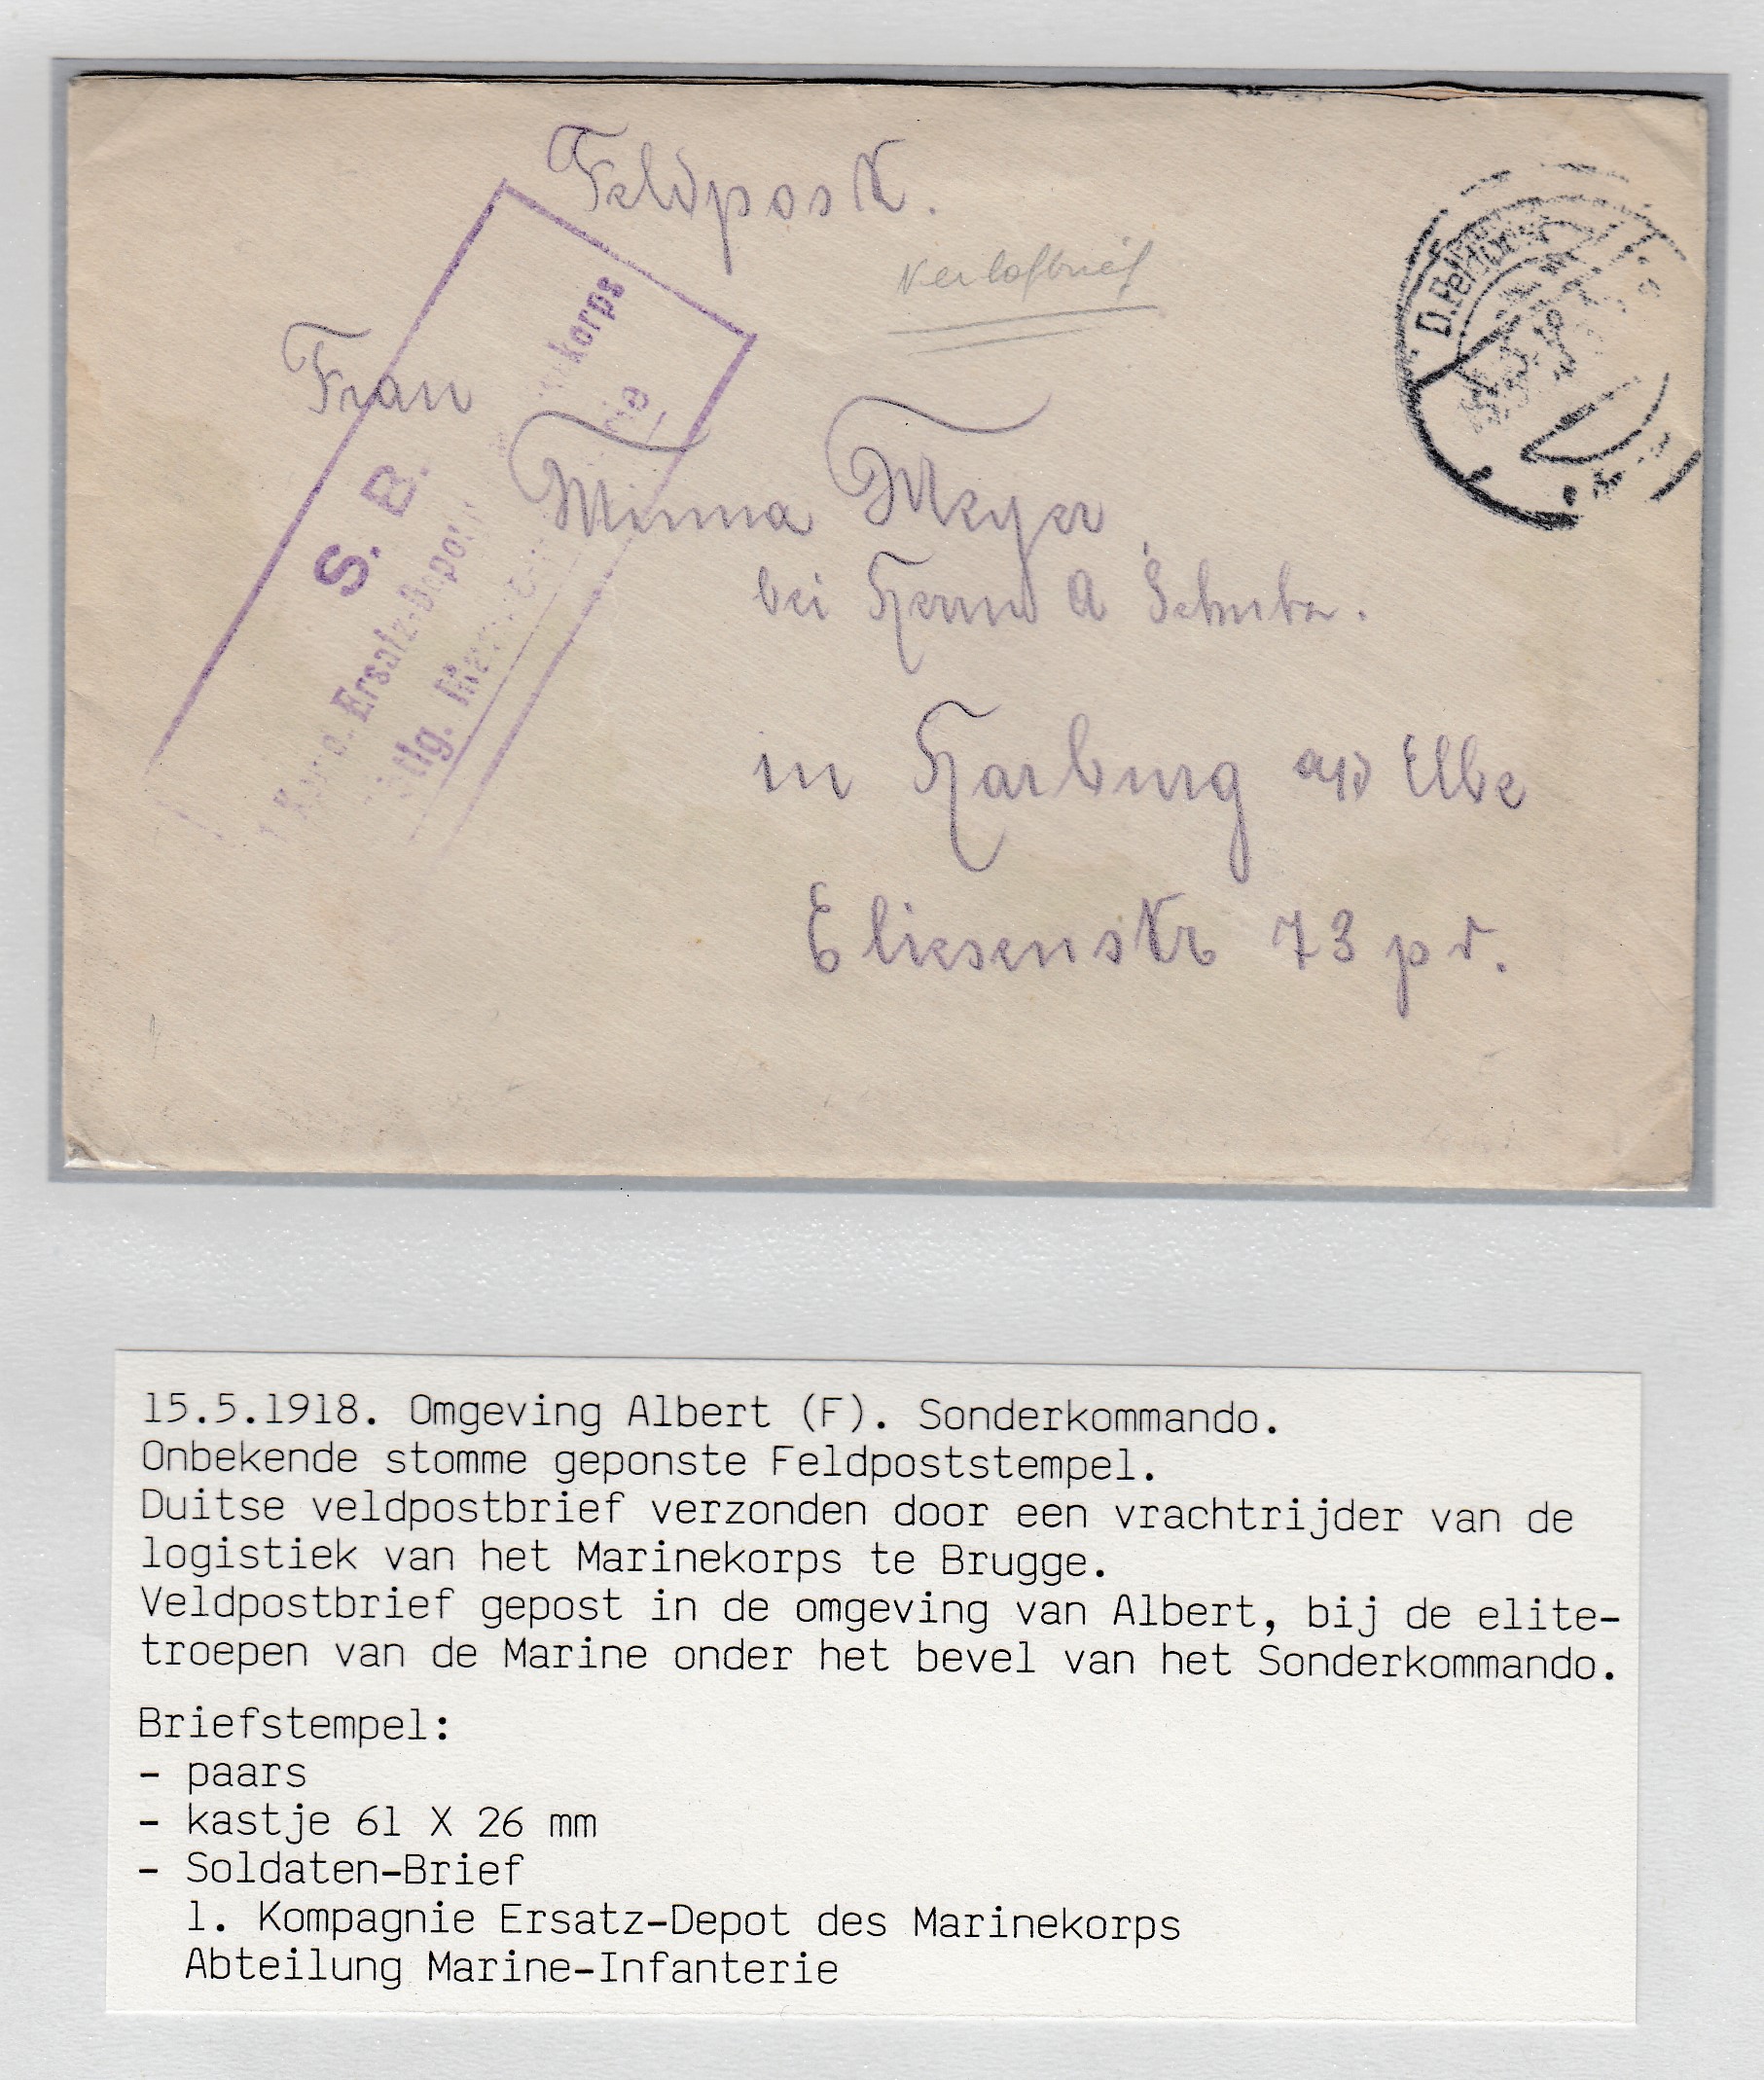 Feldpost.
Verlofbrief
D. Feldpost
Frau
Minna Meyer
bei Herrn A Schulz.
in Harburg a/d Elbe
Eliesenstr 73 pr.
S. B.
Ersatz-Depot korps
15.5.1918. Omgeving Albert (F). Sonderkommando.
Onbekende stomme geponste Feldpoststempel.
Duitse veldpostbrief verzonden door een vrachtrijder van de
logistiek van het Marinekorps te Brugge.
Veldpostbrief gepost in de omgeving van Albert, bij de elite-
troepen van de Marine onder het bevel van het Sonderkommando.
Briefstempel:
- paars
- kastje 61 X 26 mm
- Soldaten-Brief
1. Kompagnie Ersatz-Depot des Marinekorps
Abteilung Marine-Infanterie